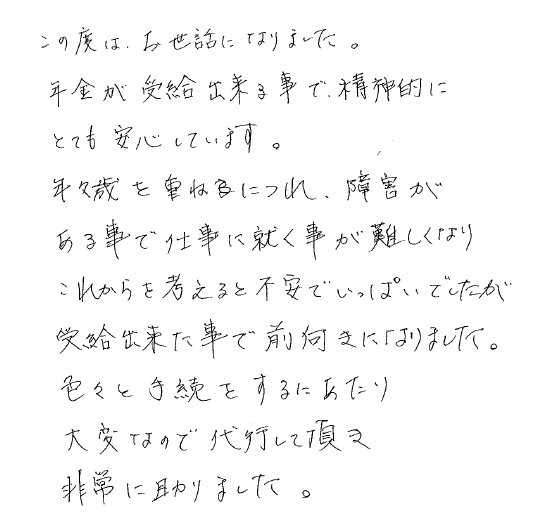 この度は、お世話になりました。
年金が受給出来る事で、精神的に
とても安心しています。
年令歳を重ねるにつれ、障害が
ある事で仕事に就く事が難しくなり
これからを考えると不安でいっぱいでしたが
受給出来た事で前向きになりました。
色々と手続をするにあたり
大変なので代行して頂き
非常に助かりました。